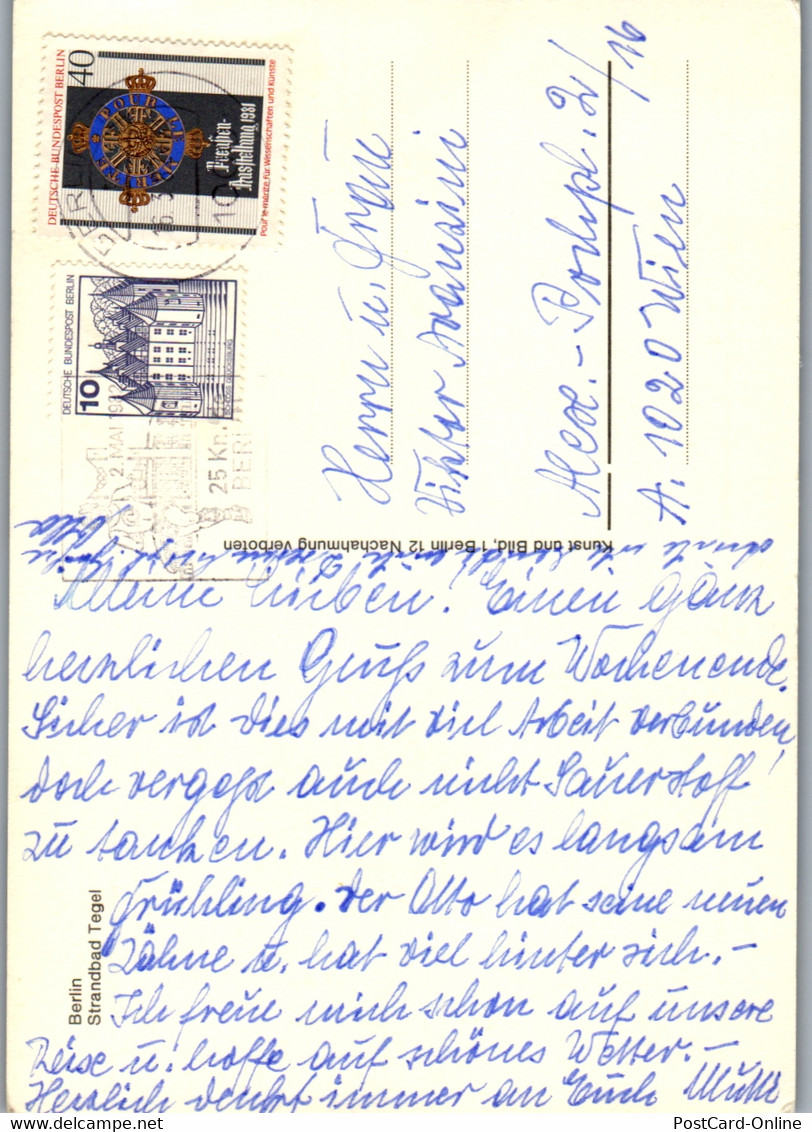 DEUTSCHE BUNDESPOST BERLIN
40
POUR LE MÉRITE
Preußen-
Ausstellung 1981
Pour le mérite für Wissenschaften und Künste
BERLIN
DEUTSCHE BUNDESPOST BERLIN
10
SCHLOSS GLÜCKSBURG
2. MAI 1982
25 Km
BERLIN
Herrn u. Frau
Viktor
Alex.-Pochpl. 2/16
A. 1020 Wien
Kunst und Bild, 1 Berlin 12 Nachahmung verboten
Meine Lieben! Einen ganz
herzlichen Gruß zum Wochenende.
Sicher ist dies mit viel Arbeit verbunden,
doch vergeßt auch nicht Sauerstoff
zu tanken. Hier wird es langsam
Frühling. Der Otto hat seine neuen
Zähne u. hat viel hinter sich.-
Ich freue mich schon auf unsere
Reise u. hoffe auf schönes Wetter.-
Herzlich denkt immer an Euch Mutti
Berlin
Strandbad Tegel
PostCard-Online